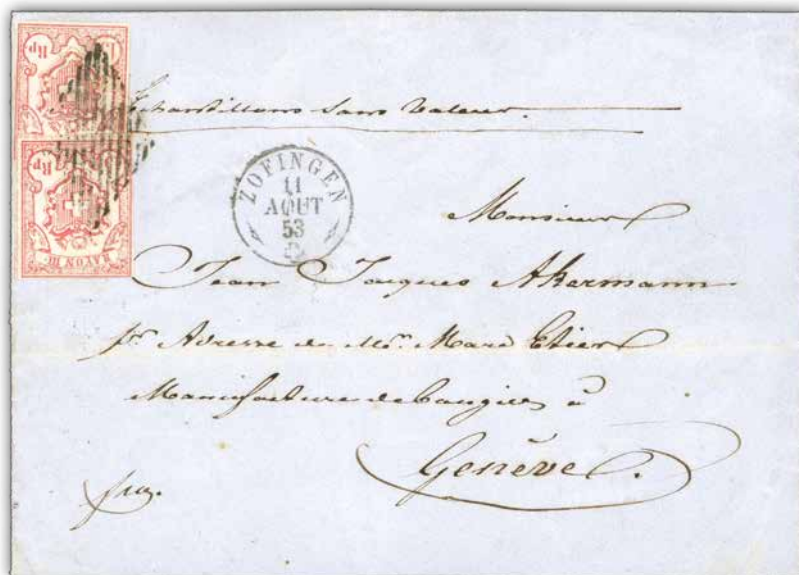 Rp
Rp
RAYON III.
Echantillons sans valeur.
ZOFINGEN
11
AOUT
53
Monsieur
Jean Jaques Akermann
pr Adresse de Mr. Marc Etier
Manufacture de bougies à
Genève.